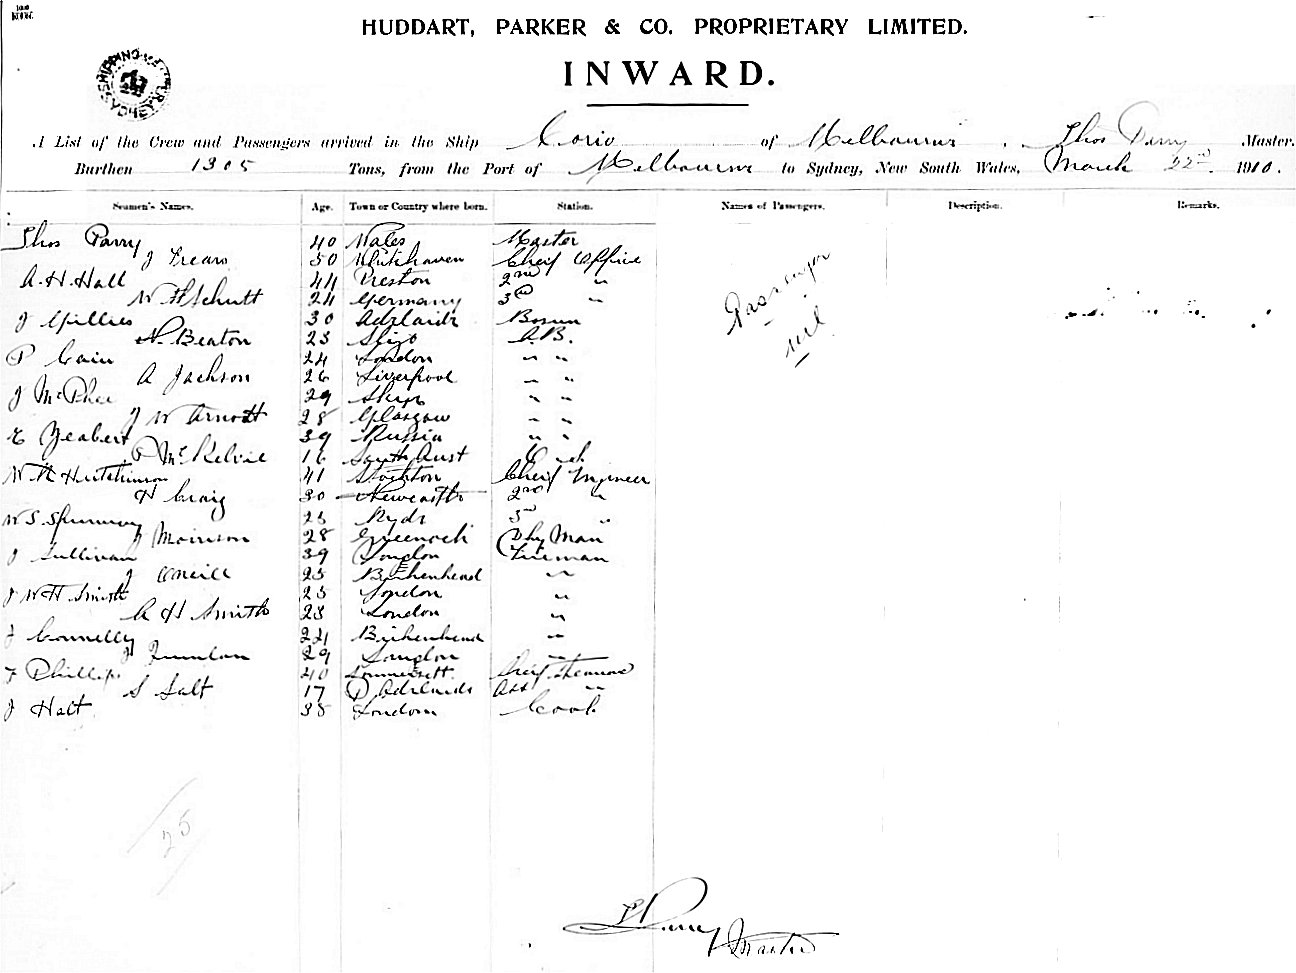 HUDDART, PARKER & CO. PROPRIETARY LIMITED.
INWARD.
A List of the Crew and Passengers arrived in the Ship Corio of Melbourne, Thos Parry Master.
Burthen 1305 Tons, from the Port of Melbourne to Sydney, New South Wales, March 22nd 1910.
Seamen's Names. Age. Town or Country where born. Station. Names of Passengers. Description. Remarks.
Thos Parry 40 Wales Master
J Frears 50 Whitehaven Cheif Officer
A. H. Hall 44 Preston 2nd "
W H Schutt 24 Germany 3rd "
J Gillies 30 Adelaide Bosun
N. Beaton 23 A.B.
P Cain 24 London " "
A Jackson 26 Liverpool " "
J McPhee 29 Skye " "
J W Arnott 28 Glasgow " "
E 39 Russia " "
P McKelvie 16 South Aust
W R Hutchinson 41 Stockton Cheif Engineer
H Craig 30 Newcastle 2nd "
W. S. 25 Ryde 3rd "
J Morrison 28 Greenock Dky Man
J Sullivan 39 London Fireman
J O'Neill 25 Birkenhead "
J W H Smith 25 London "
A H Smith 23 London "
J Connelly 24 Birkenhead "
J Quinlan 29 London "
F Phillips 40 Sommersett Cheif Steward
S Salt 17 P Adelaide Asst "
J Hatt 38 London Cook
Passenger
nil
25
T Parry
Master